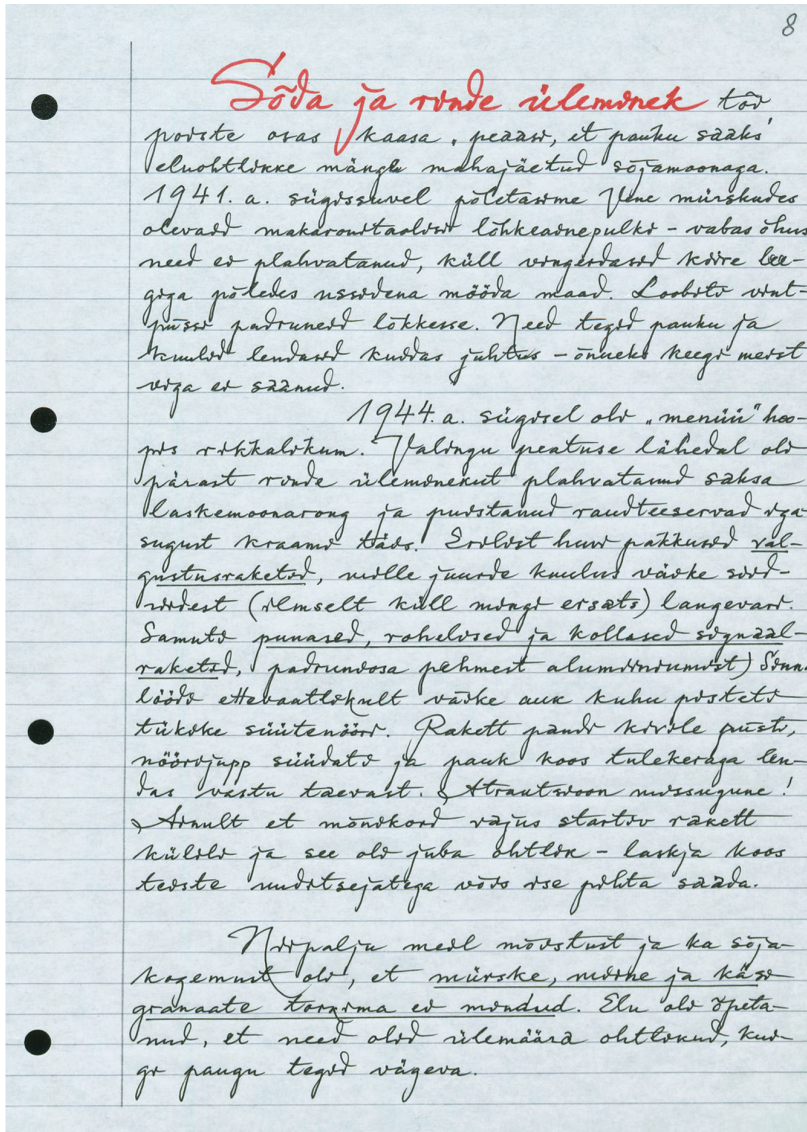 8
Sõda ja rinde üleminek tõi
poiste osas kaasa „peaasi, et pauku saaks"
eluohtlikke mänge mahajäetud sõjamoonaga.
1941. a. sügissuvel põletasime Vene mürskudes
olevaid makaronitaolisi lõhkeainepulki – vabas õhus
need ei plahvatanud, küll vingerdasid kiire lee-
giga põledes ussidena mööda maad. Loobiti vint-
püssi padruneid lõkkesse. Need tegid pauku ja
kuulid lendasid kuidas juhtus – õnneks keegi meist
viga ei saanud.
1944. a. sügisel oli „menüü" hoo-
pis rikkalikum. Valingu peatuse lähedal oli
pärast rinde üleminekut plahvatanud saksa
laskemoonarong ja puistanud raudteeservad iga
sugust kraami täis. Erilist huvi pakkusid val-
gustusraketid, mille juurde kuulus väike siid-
riidest (ilmselt küll mingi ersats) langevari.
Samuti punased, rohelised ja kollased signaal-
raketid, padruniosa pehmest alumiiniumist) Sinna
löödi ettevaatlikult väike auk kuhu pisteti
tükike süütenööri. Rakett pandi kivile püsti,
nöörijupp süüdati ja pauk koos tulekeraga len-
das vastu taevast. Atraktsioon missugune!
Ainult et mõnikord vajus startiv rakett
külili ja see oli juba ohtlik – laskja koos
teiste uudistsejatega võis ise pihta saada.
Niipalju meil mõistust ja ka sõja-
kogemust oli, et mürske, miine ja käsi-
granaate torkima ei mindud. Elu oli õpeta-
nud, et need olid ülemäära ohtlikud, kui-
gi paugu tegid vägeva.